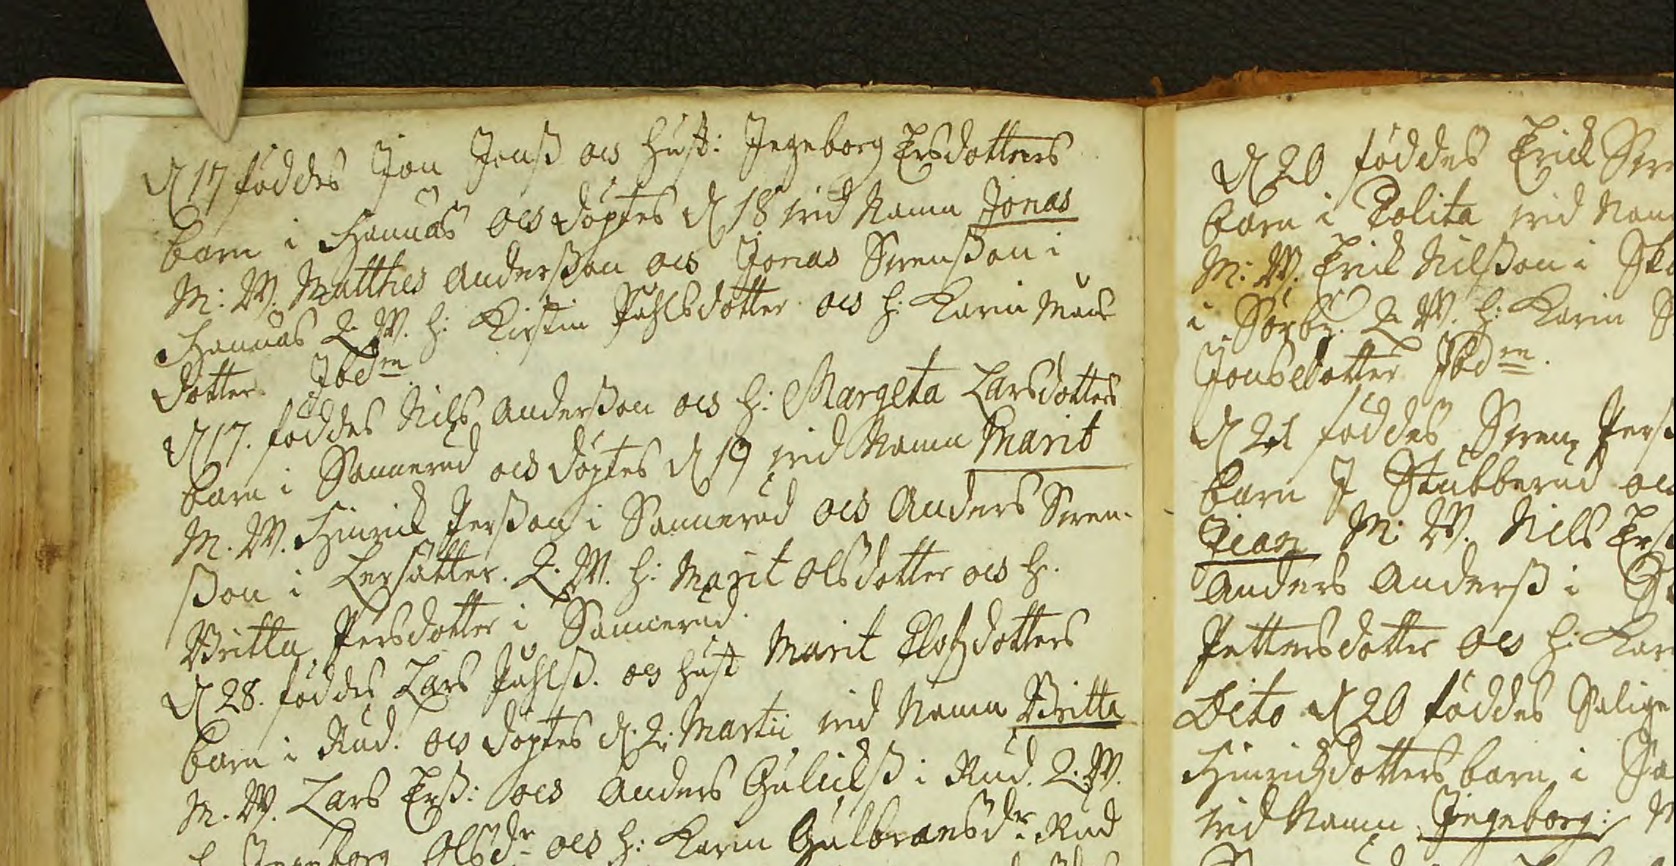 d 17 föddes Jon Jonß ocs hust: Ingeborg Ersdotters
barn i Hannäs ocs döptes d 18 wid Namn Jonas
M: W: Matthes Anderßon ocs Jonas Swenßon i
Hannäs Q. W. h: Kirstin Påhlsdotter ocs h: Karin Måns
dotter Ibdm
d 17. föddes Nils Anderßon ocs h: Margeta Larsdotters
barn i Sannerud ocs döptes d 19 wid Namn Marit
M. W. Hinrick Perßon i Sannerud ocs Anders Swen-
ßon i Lersätter. Q. W. h: Marit Olsdotter ocs h.
Britta Persdotter i Sannerud.
d 28. föddes Lars Påhlß. os hust Marit Elofzdotters
barn i Rud. ocs döptes d. 2. Martii wid Namn Britta
M. W. Lars Erß: ocs Anders Gulickß i Rud. Q. W.
h Ingeborg Olsdr ocs h: Karin Gulbransdr Rud
d 20 föddes Erick
barn i Tolita wid Nam
M: W: Erick Nilßon i
i Sörby. Q W. h: Karin
Jonsdotter Ibdm.
d 21 föddes Swen Perß
barn I Stubberud oc
Jean M: W. Nils Er
Anders Anderß i
Pettersdotter ocs h: Kar
Dito d 20 föddes Salige
Hinrichsdotters barn i
wid Namn Ingeborg: